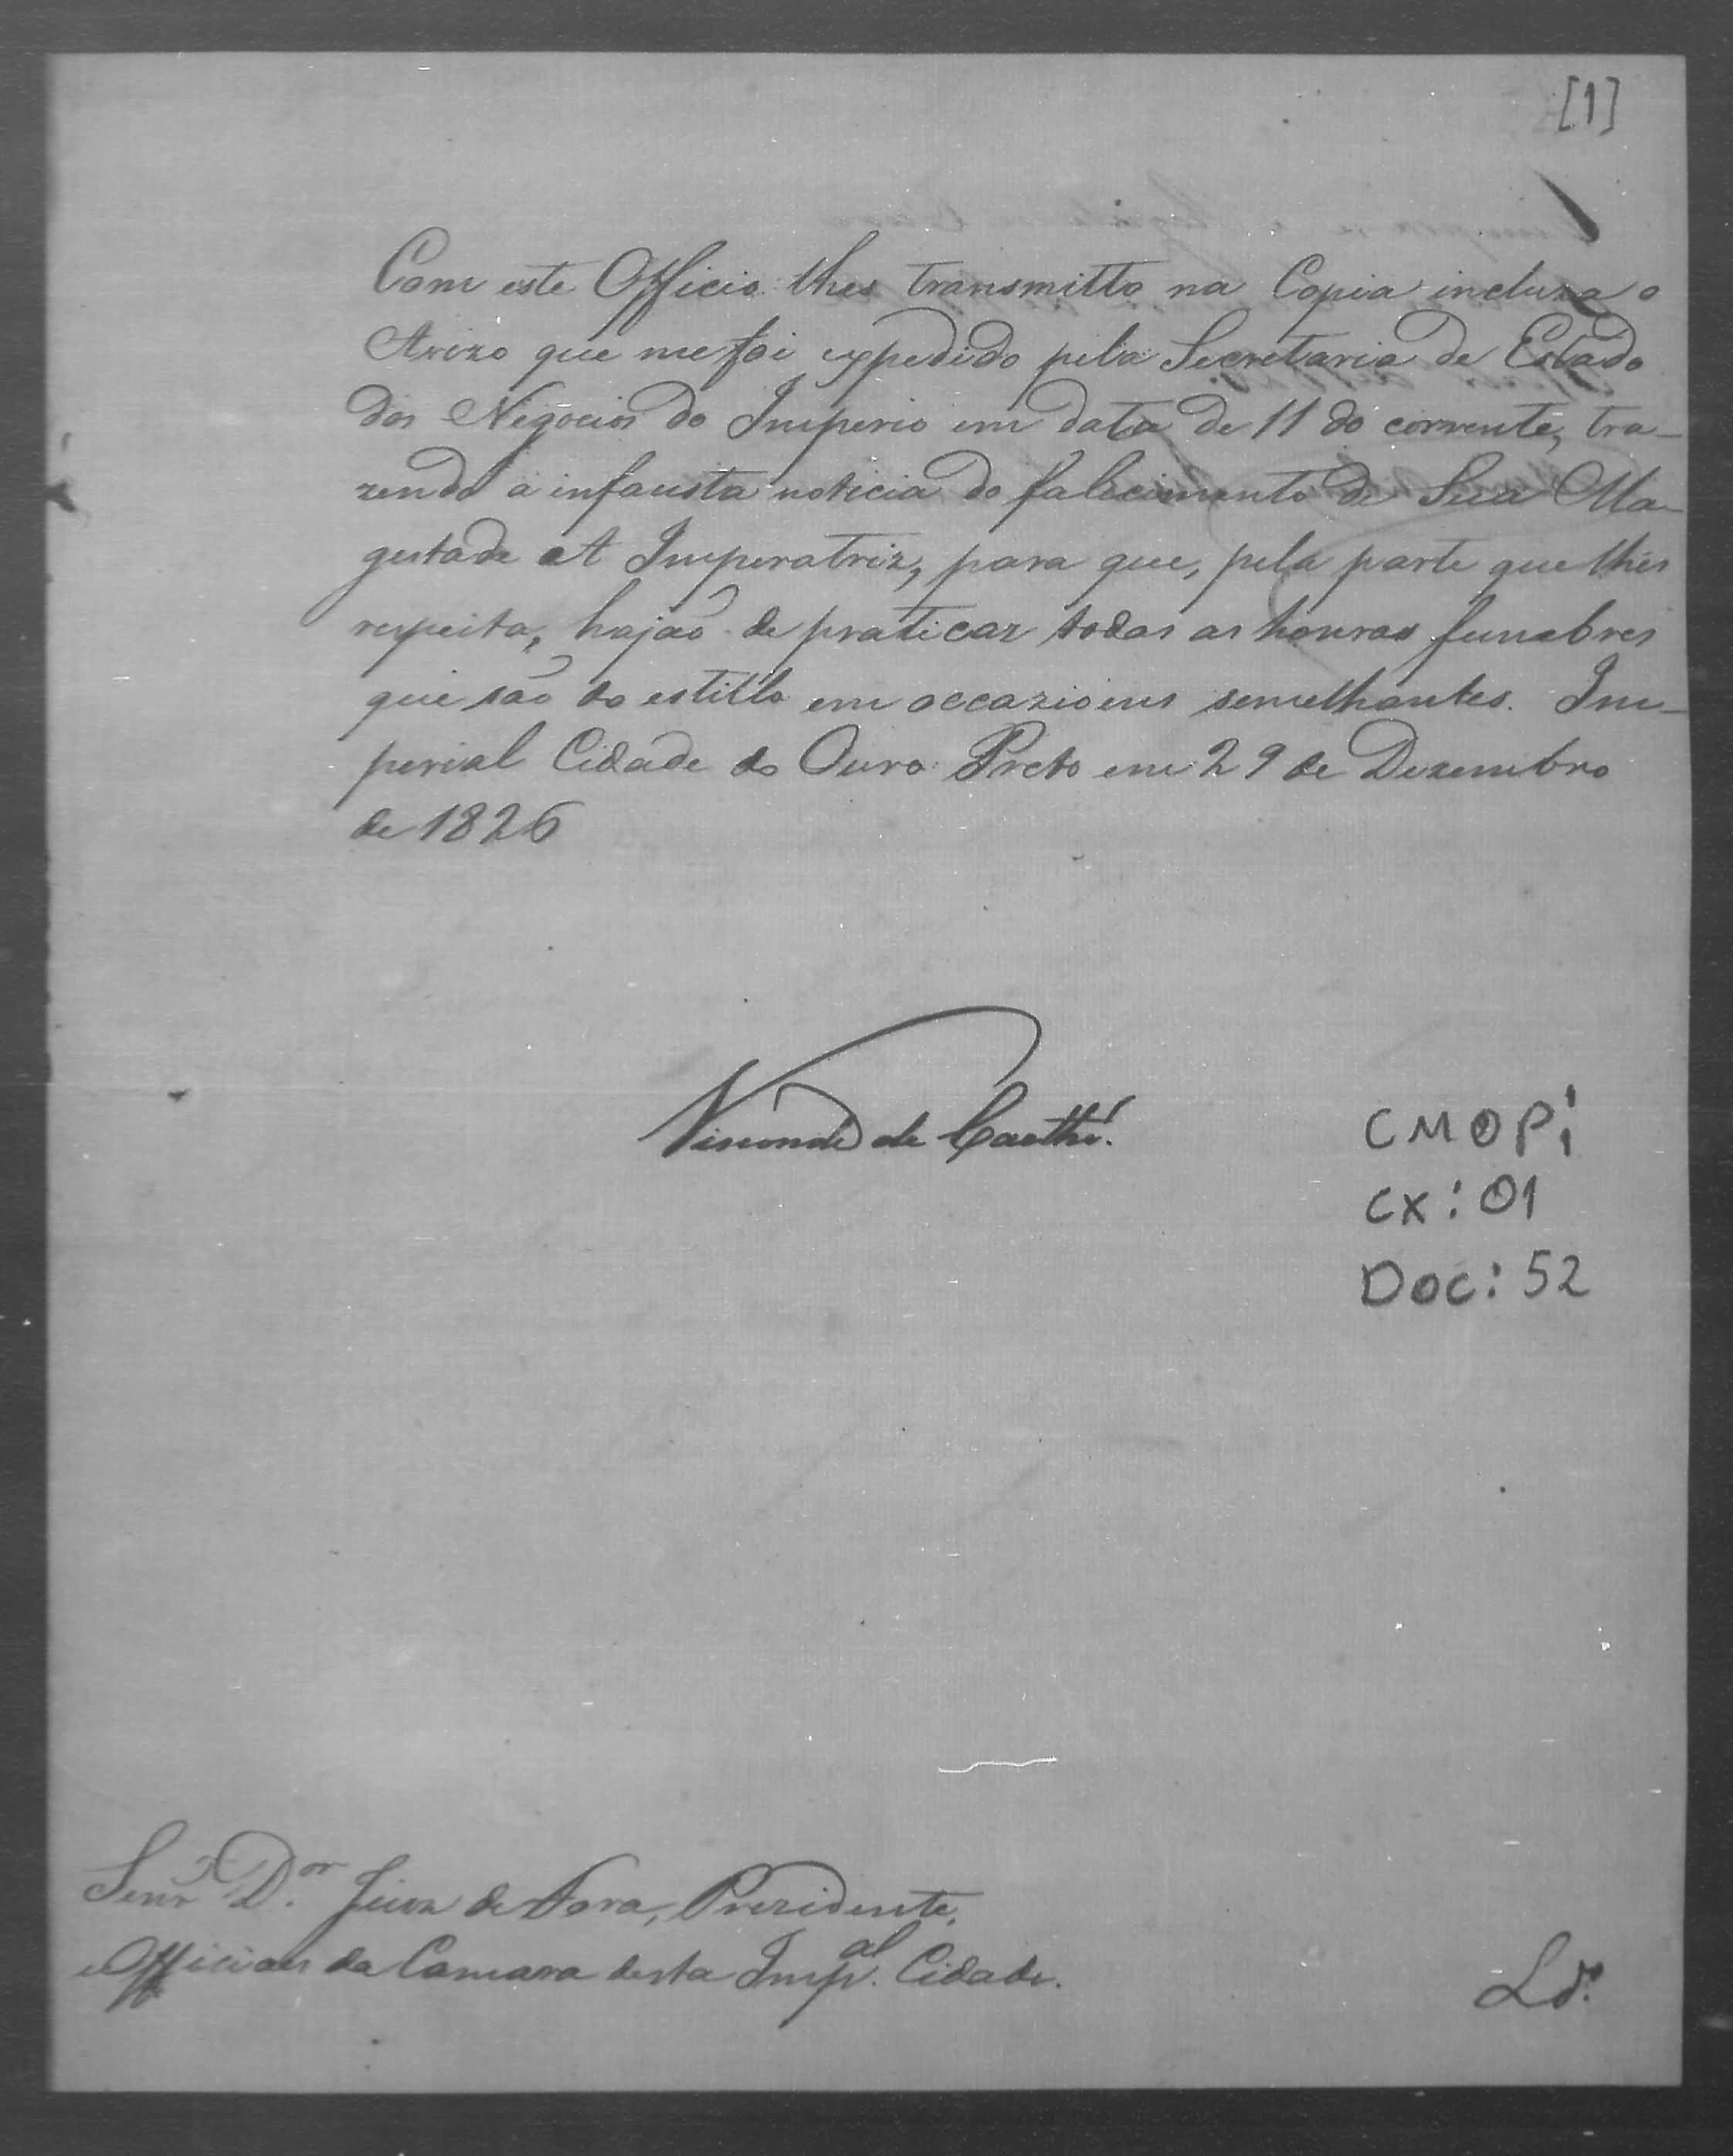 [1]
Com este Officio lhes transmitto na Copia incluza o
Avizo que me foi expedido pela Secretaria de Estado
dos Negocios do Imperio em data de 11 do corrente, tra-
zendo a infausta noticia do falecimento de Sua Ma-
gestade A Imperatriz, para que, pela parte que lhes
respeita, hajão de praticar todas as honras funebres
que são do estillo em occazioens semelhantes. Im-
perial Cidade do Ouro Preto em 29 de Dezembro
de 1826
Visconde de Caethé.
CMOP;
CX: 01
DOC: 52
Senr. Dor. Juiz de Fora, Prezidente,
e Officiaes da Camara desta Impal. Cidade.